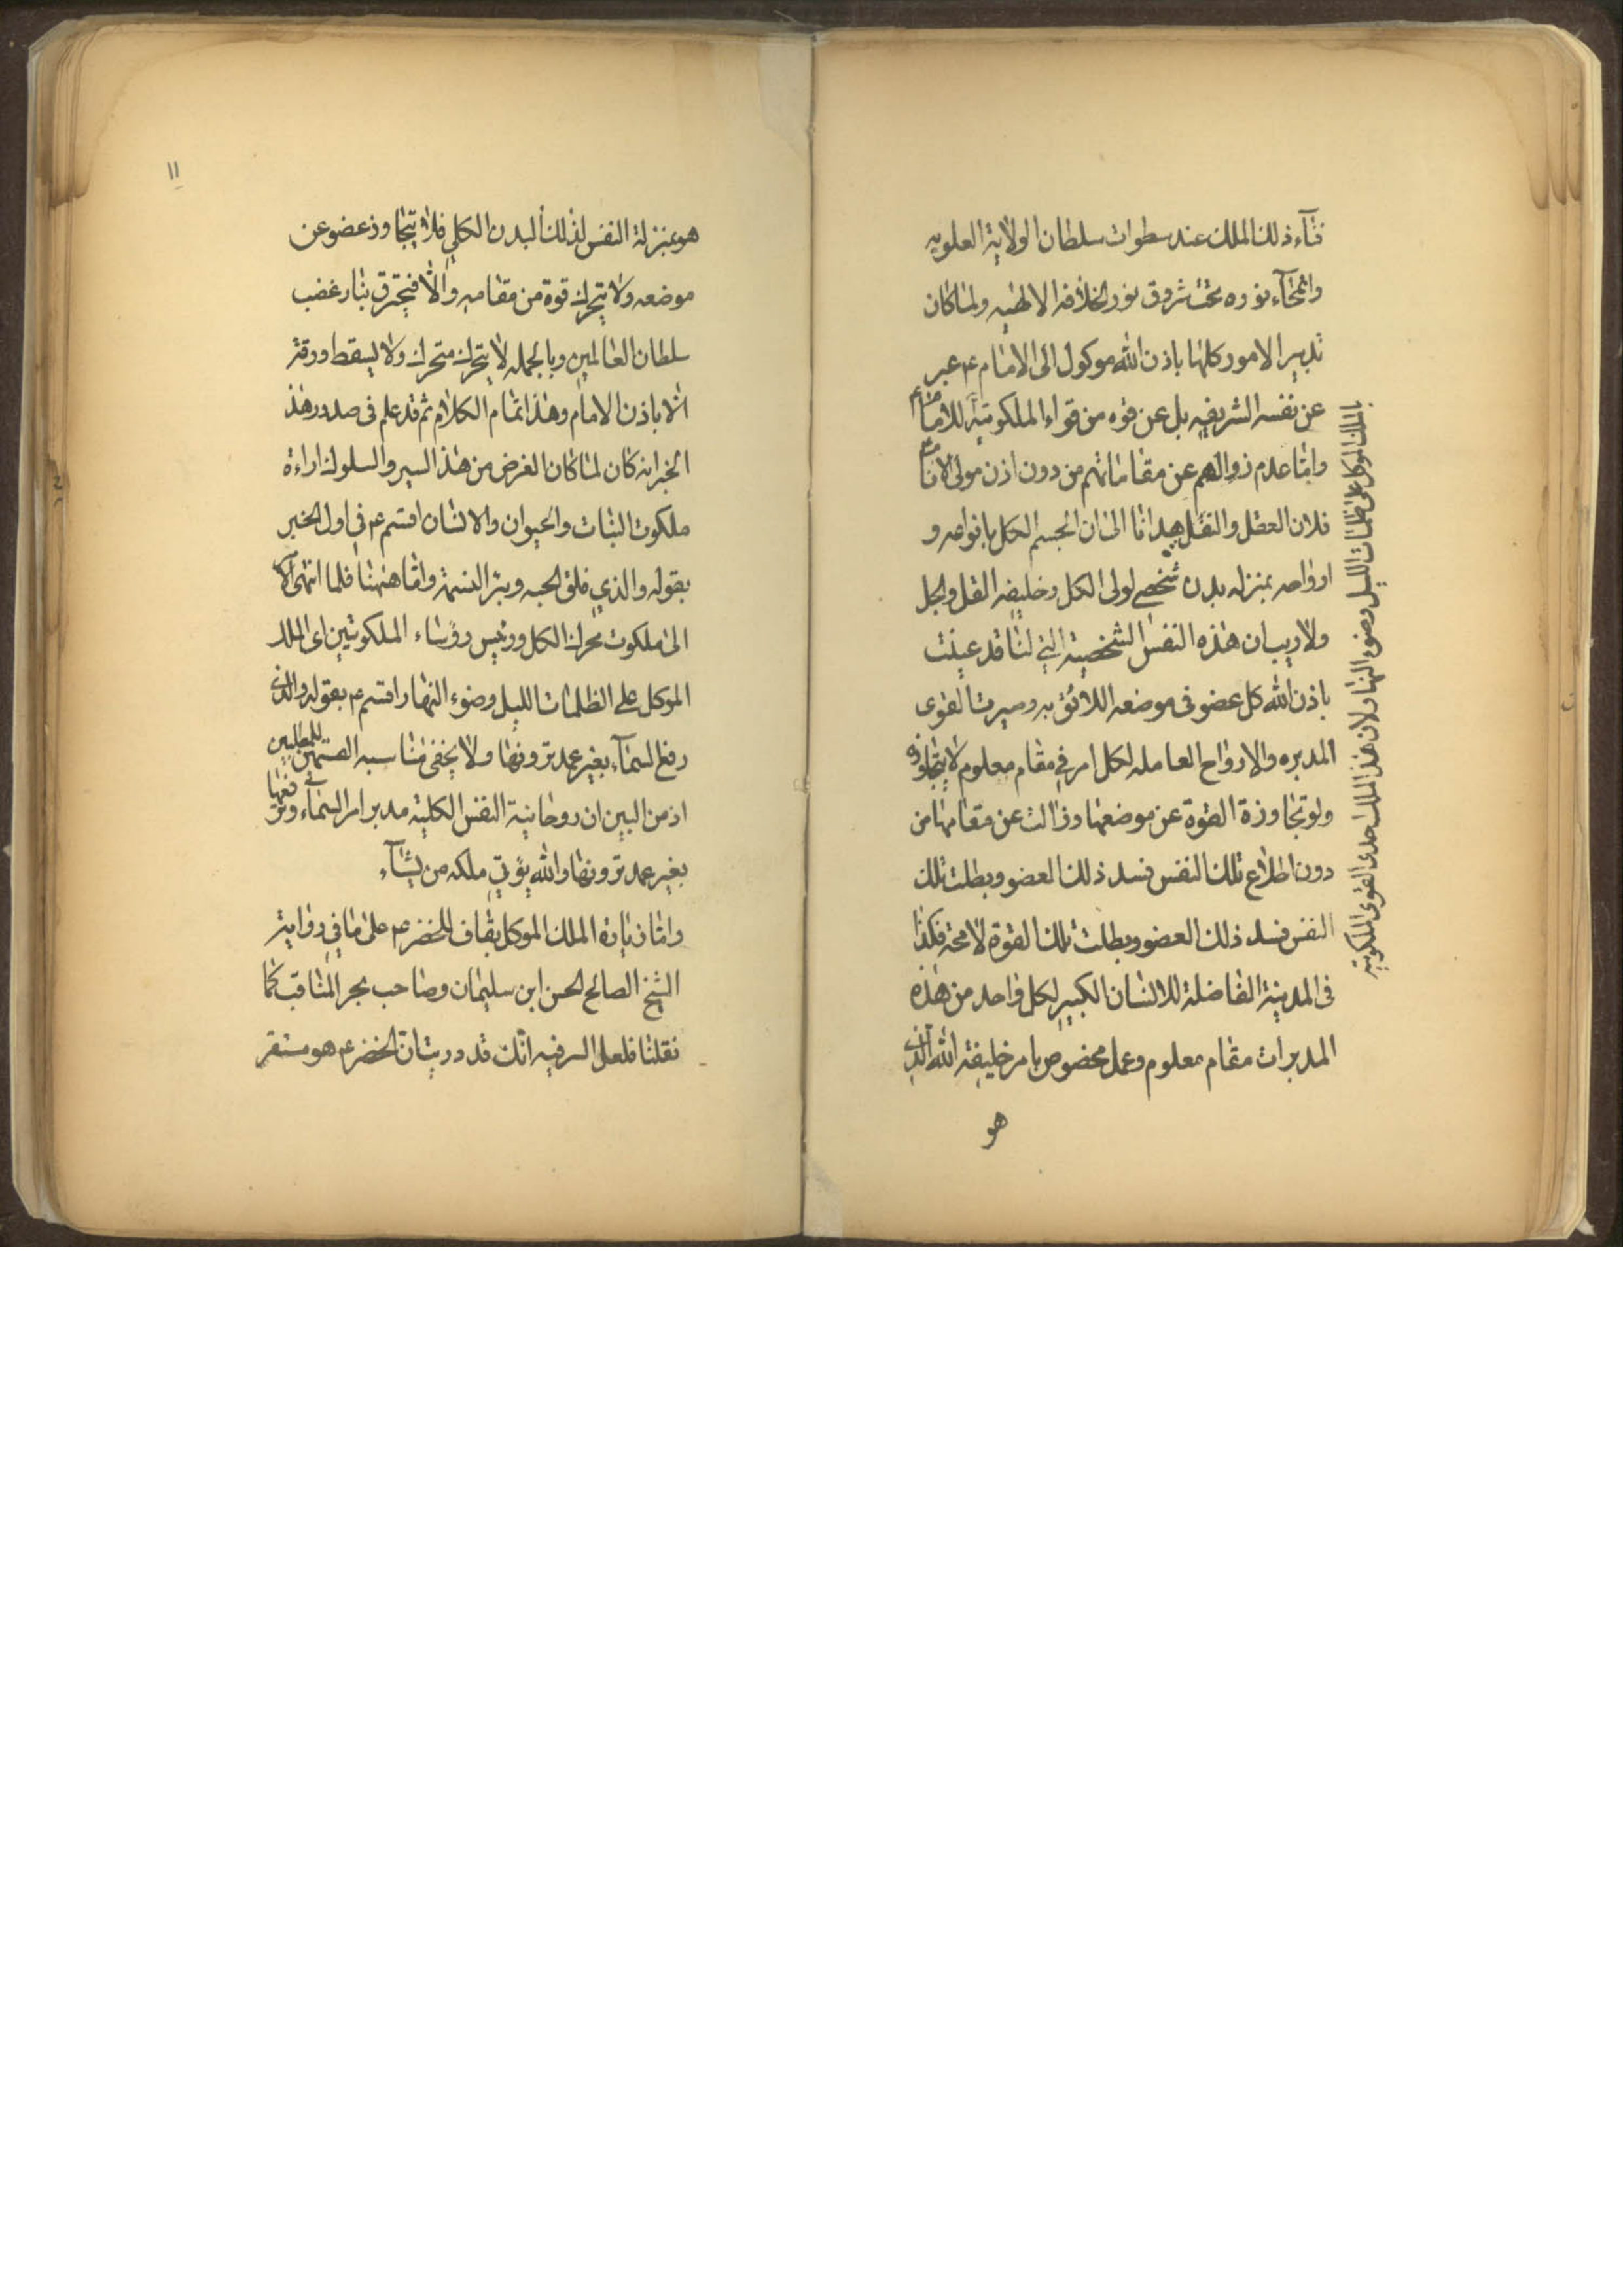 فنآء ذلك الملك عند سطوات سلطان الولاية العلويه
وانمحآء نوره تحت شروق نور الخلافه الالهيه ولما كان
تدبير الامور كلها باذن الله موكول الى الامام ع عبر
عن نفسه الشريفه بل عن قوه من قواه الملكوتية للامام
بالملك الموكل على ظلمات الليل وضوء النهار لان هذا الملك احدى القوى الملكوتية
واما عدم زوالهم عن مقاماتهم من دون اذن مولى الانام
فلان العقل والنقل هدانا الى ان الجسم الكل بانواعه و
ارواحه بمنزله بدن شخصي لولى الكل وخليفه القل والجل
ولا ريب ان هذه النفس الشخصية التي لنا قد عينت
باذن الله كل عضو فى موضعه اللائق به وصيرت القوى
المدبره والارواح العامله لكل امر في مقام معلوم لا يتجاوزه
ولو تجاوزة القوة عن موضعها وزالت عن مقامها من
دون اطلاع تلك النفس فسد ذلك العضو وبطلت تلك
النفس فسد ذلك العضو وبطلت تلك القوة لا محة فكذا
فى المدينة الفاضلة للانسان الكبير لكل واحد من هذه
المدبرات مقام معلوم وعمل مخصوص بامر خليفة الله الذي
هو
١١
هو بمنزلة النفس لذلك البدن الكلي فلا يتجاوز عضو عن
موضعه ولا يتحرك قوة من مقامه والا فيحترق بنار غضب
سلطان العالمين وبالجمله لا يتحرك متحرك ولا يسقط ورقة
الا باذن الامام وهذا تمام الكلام ثم قد علم فى صدور هذ
الخبر انه كان لما كان الغرض من هذا السير والسلوك اراءة
ملكوت النبات والحيوان والانسان اقسم ع في اول الخبر
بقوله والذي فلق الحبه وبرا النسمة واما ههنا فلما انتهى الامر
الى ملكوت محرك الكل ورئيس رؤساء الملكوتيين اى الملك
الموكل على الظلمات الليل وضوء النهار اقسم ع بقوله والذي
رفع السمآء بغير عمد ترونها ولا يخفى مناسبه القسمين للمطلبين
اذ من البين ان روحانية النفس الكلية مدبر امر السمآء ورفعها
بغير عمد ترونها والله يؤتي ملكه من يشآء
واما زيارة الملك الموكل بقاف للخضر ع على ما في رواية
الشيخ الصالح الحسن ابن سليمان وصاحب بحر المناقب كما
نقلنا فلعل السر فيه انك قد دريت ان الخضر ع هو مستقر